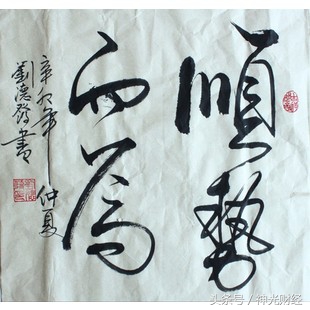 順勢
而為
辛卯年仲夏
劉德發書
头条号/神光财经